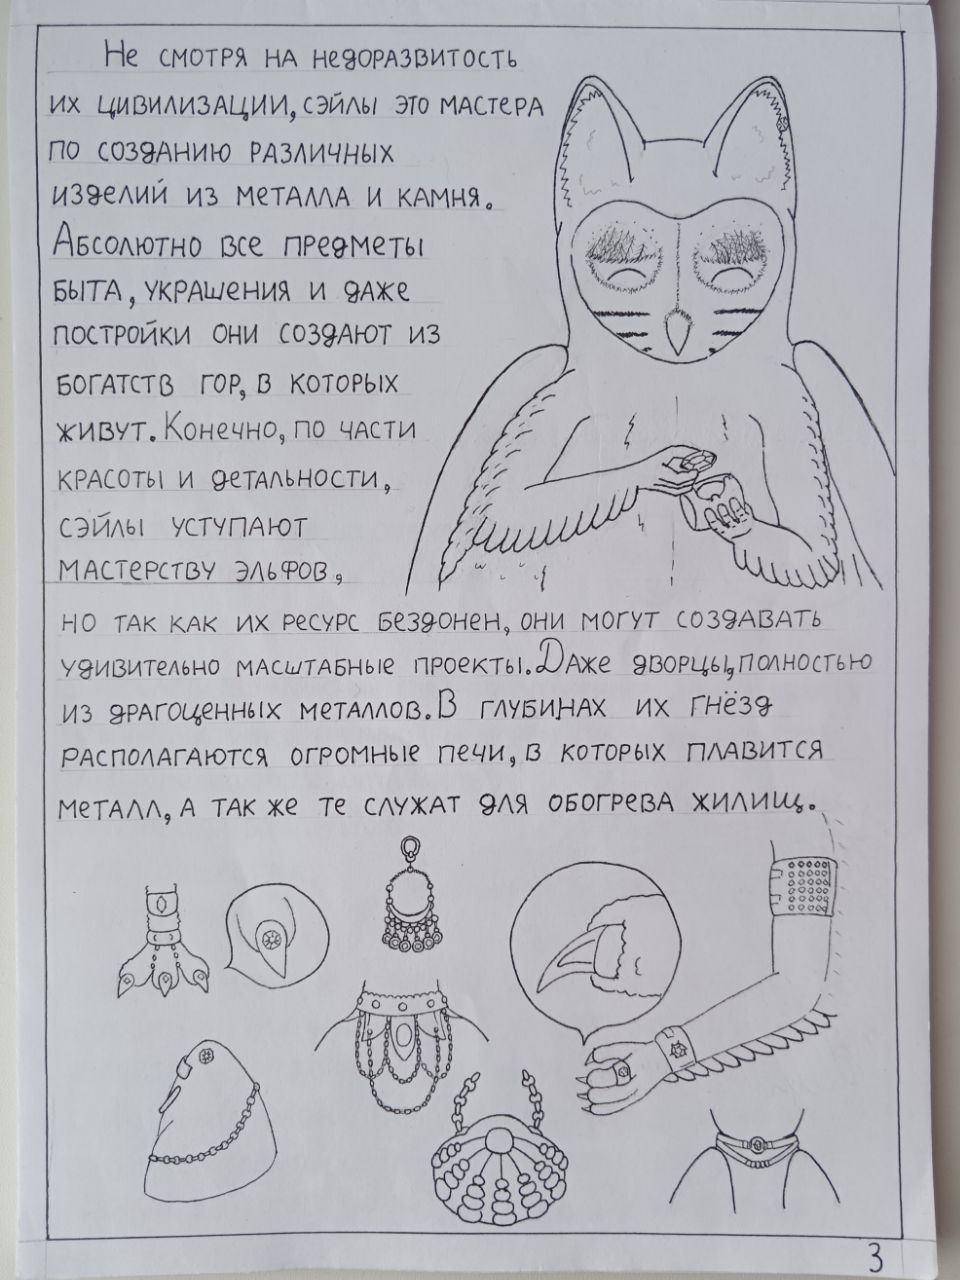 Не смотря на недоразвитость
их цивилизации, сэйлы это мастера
по созданию различных
изделий из металла и камня.
Абсолютно все предметы
быта, украшения и даже
постройки они создают из
богатств гор, в которых
живут. Конечно, по части
красоты и детальности,
сэйлы уступают
мастерству эльфов,
но так как их ресурс бездонен, они могут создавать
удивительно масштабные проекты. Даже дворцы, полностью
из драгоценных металлов. В глубинах их гнёзд
располагаются огромные печи, в которых плавится
металл, а так же те служат для обогрева жилищ.
3